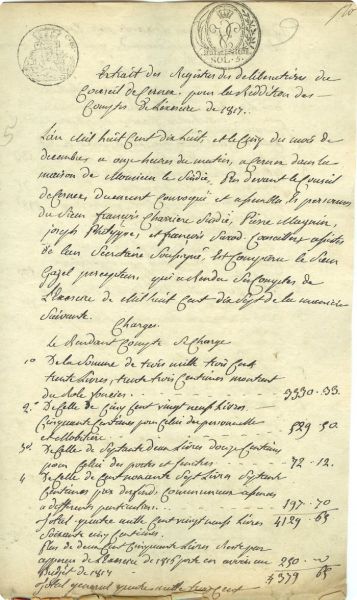 SOL. 5.
Extrait des Registres des deliberations du
Conseil de Cernex pour la Reddition des
Comptes de l'exercice de 1817.
L'an Mil huit Cent dix huit, et le Cinq du mois de
decembre a onze heures du matin, a Cernex dans la
maison de Monsieur le Sindic, Par devant le Conseil
de Cernex, duement convoqué et assemblé es personnes
du Sieur françois Charriere Sindic, Pierre Magnin,
joseph Philippe, et françois Conseillers assistés
de leur Secretaire Soussigné, Est Comparu le Sieur
percepteur, qui a Rendu Ses Comptes de
L'Exercice de Mil huit Cent dix Sept de la maniere
Suivante.
Charges.
Le Rendant Compte Se Charge
1o De la Somme de trois mille trois Cent
trente Livres, trente trois Centimes montant
du Role foncier. 3330. 33.
2o De Celle de Cinq Cent vingt neuf Livres
Cinquante Centimes pour Celui des personnelle
et Mobiliere 529. 50.
3o De Celle de Septante deux Livres douze Centimes
pour Celui des portes et fenêtres 72. 12.
4 De Celle de Cent nonante Sept Livres Septante
Centimes par Communaux
a differents particuliers 197. 70
Total quatre mille Cent vingt neuf Livres 4129. 65
Soixante cinq Centimes.
Plus de deux Cent Cinquante Livres
de L'exercice de 1816 porté en arriere au 250.
Budjet de 1817 4379 65
Total general quatre mille trois Cent